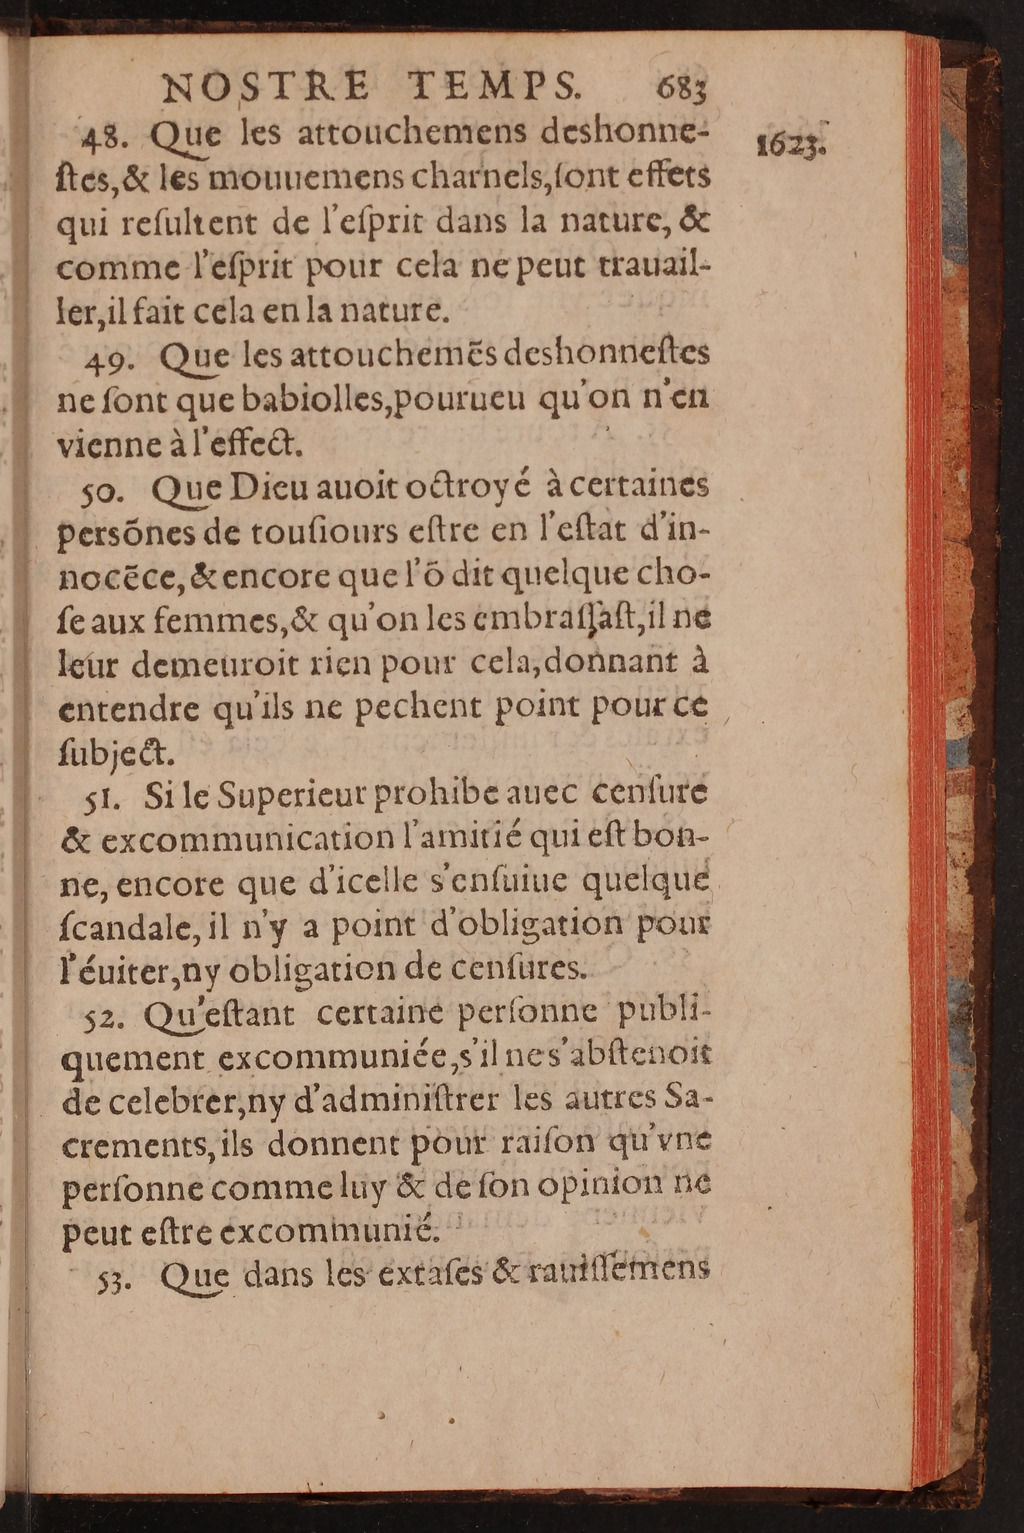 NOSTRE TEMPS. 683
48. Que les attouchemens deshonne-
1623.
ſtes,& les mouuemens charnels,ſont effets
qui reſultent de l'eſprit dans la nature, &
comme l'eſprit pour cela ne peut trauail-
ler,il fait cela en la nature.
49. Que les attouchemēs deshonneſtes
ne ſont que babiolles,pourueu qu'on n'en
vienne à l'effect.
50. Que Dieu auoit octroyé à certaines
persōnes de touſiours eſtre en l'eſtat d'in-
nocēce,& encore que l'ō dit quelque cho-
ſe aux femmes,& qu'on les embraſſaſt,il ne
leur demeuroit rien pour cela,donnant à
entendre qu'ils ne pechent point pour ce
ſubject.
51. Si le Superieur prohibe auec cenſure
& excommunication l'amitié qui eſt bon-
ne, encore que d'icelle s'enſuiue quelque
ſcandale, il n'y a point d'obligation pour
l'éuiter,ny obligation de cenſures.
52. Qu'eſtant certaine perſonne publi-
quement excommuniée,s'il ne s'abſtenoit
de celebrer,ny d'adminiſtrer les autres Sa-
crements,ils donnent pour raiſon qu'vne
perſonne comme luy & de ſon opinion ne
peut eſtre excommunié.
53. Que dans les extaſes & rauiſſemens